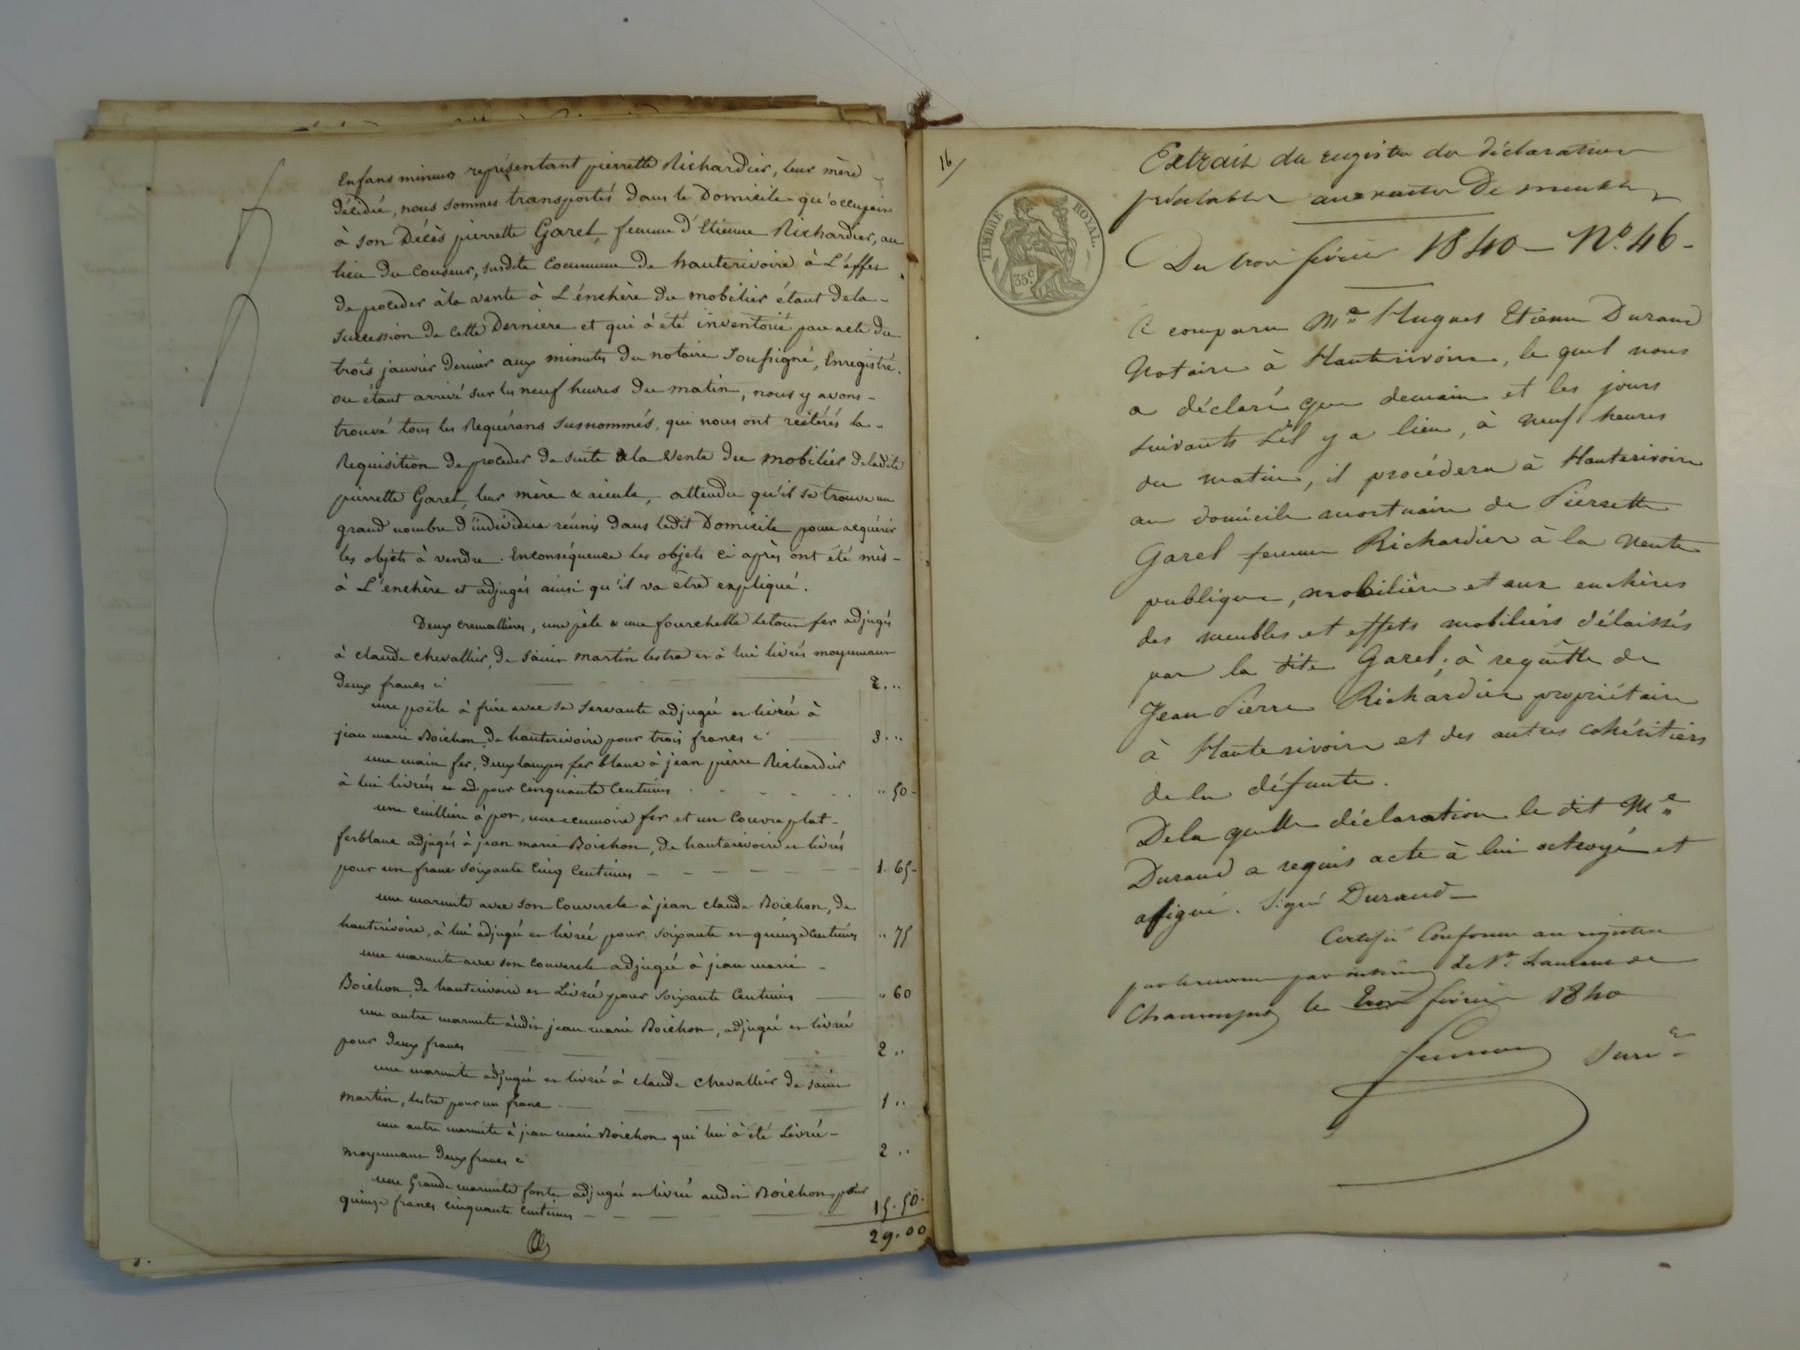 Enfans mineurs représentant pierrette Richardier, leur mère
décédée, nous sommes transportés dans le Domicile qu'occupait
à son Décès pierrette Garel, femme d'Etienne Richardier, au
lieu du Couseur, susdite Commune de hauterivoire à L'effet
de proceder à la vente à L'énchère du mobilier étant dela-
succession de cette Derniere et qui à été inventorié par acte du
trois janvier dernier aux minutes du notaire soussigné, Enregistré.
où étant arrivé sur les neuf heures du matin, nous y avons-
trouvé tous les Requérans susnommés, qui nous ont réitérés la-
Requisition de proceder de suite à la vente du mobilier deladite
pierrette Garel, leur mère & aieule, attendu qu'il se trouve un
grand nombre d'individus réunis dans ledit Domicile pour acquérir
les objets à vendre. Enconséquence les objets ci après ont été mis-
à L'enchère et adjugés ainsi qu'il va être expliqué.
Deux cremallières, une pèle & une fourchette letout fer adjugés
à claude chevallier, de Saint martin lestra et à lui livrés moyennant
deux francs ci 2. "
une poële à frire avec sa servante adjugée et livrée à
jean marie Boichon, de hauterivoire pour trois francs ci 3. "
une main fer, deux lampes fer blanc à jean pierre Richardier
à lui livrés et adj. pour cinquante centimes " 50
une cuillière à pot, une ecumoire fer et un Couvre plat-
ferblanc adjugés à jean marie Boichon, de hauterivoire et livrés
pour un franc soixante Cinq Centimes 1. 65
une marmite avec son Couvercle à jean claude Boichon, de
hauterivoire, à lui adjugée et livrée pour soixante et quinze Centimes " 75
une marmite avec son couvercle adjugée à jean marie
Boichon, de hauterivoire et Livrée pour soixante Centimes " 60
une autre marmite audit jean marie Boichon, adjugée et livrée
pour deux francs 2 "
une marmite adjugée et livrée à claude chevallier de saint
martin, lestra pour un franc 1 "
une autre marmite à jean marie Boichon qui lui à été Livrée-
moyennant deux francs ci 2 "
une Grande marmite fonte adjugée et livrée audit Boichon pour
quinze francs cinquante centimes 15. 50
29. 00
16
TIMBRE ROYAL.
35 c
Extrait du registre des déclarations
préalables aux ventes De meubles
Du trois février 1840 - N° 46 -
A comparu Me Hugues Etienne Durand
Notaire à Hauterivoire, le quel nous
a déclaré que demain et les jours
suivants s'il y a lieu, à neuf heures
du matin, il procédera à Hauterivoire
au domicile mortuaire de Pierrette
Garel femme Richardier à la vente
publique, mobilière et aux enchères
des meubles et effets mobiliers délaissés
par la dite Garel; à requette de
Jean Pierre Richardier propriétaire
à Hauterivoire et des autres cohéritiers
de la défunte.
Dela quelle déclaration le dit Me
Durand a requis acte à lui octroyé et
a signé. Signé Durand -
Certifié Conforme au registre
par le receveur par intérim de St Laurent de
Chamousset le trois février 1840